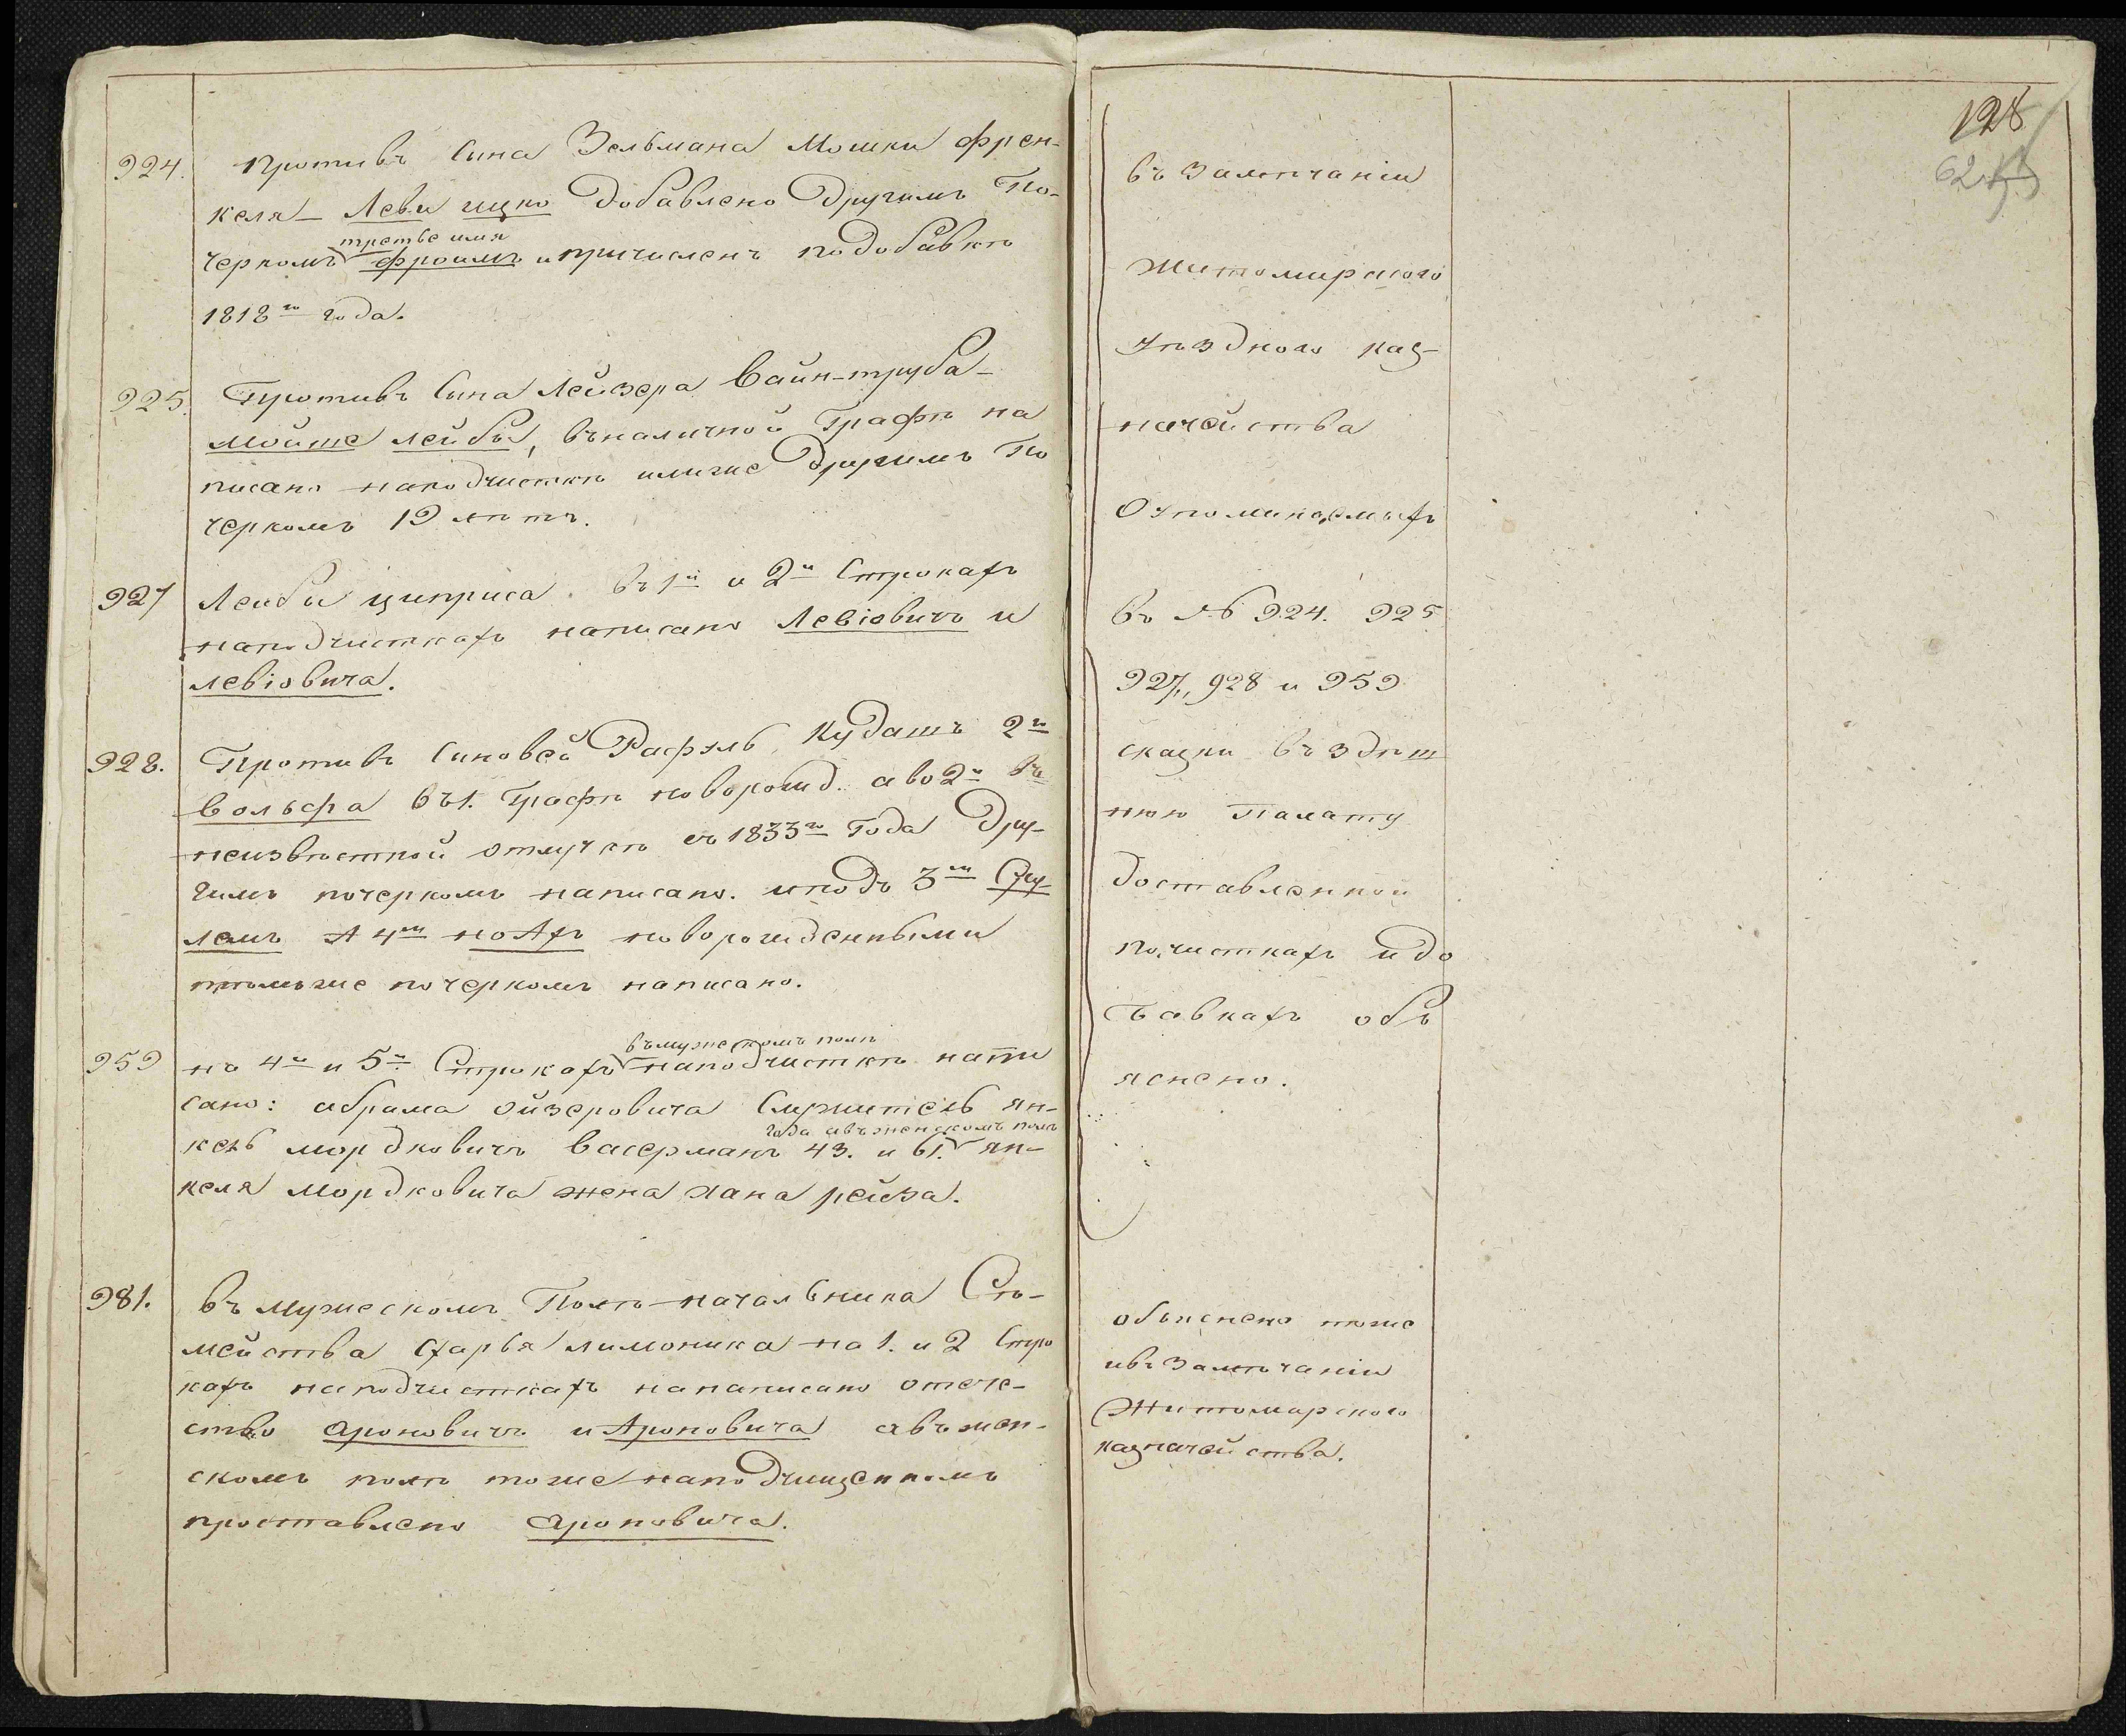 924. Противъ Сина Зельмана Мошки Френ-
келя - Леви ицко добавлено другимъ По-
третье имя
черкомъ Фроимъ и причисленъ подобавкѣ
1818го года.
925. Противъ Сина Лейзера Вайн-труба-
Мойше лейбы, въналичной Графѣ на
писано наподчисткѣ имягже другимъ По
черкомъ 19 лѣтъ.
927 Лейбы циприса въ 1й и 2й Строкахъ
наподчисткахъ написано Левіовичъ и
левіовича.
928. Противъ Синовей Рафэль Кудашъ 2го
Вольфа въ 1. Графѣ новорожд. а во 2й въ
неизвѣстной отлучкѣ съ 1833го Года Дру-
гимъ почеркомъ написано. иподъ 3мъ
лемъ А 4мъ ноАхъ новорожденными
тѣмъже почеркомъ написано.
959 на 4й и 5й Строкахъ
въмужескомъ полѣ
наподчисткѣ напи
сано: абрама Ойзеровича Служитель ян-
года авъженскомъ полѣ
кель мордковичъ васерманъ 43. и 61. ян-
келя Мордковича жена хана рейза.
981. въ мужескомъ Полѣ начальника Сѣ-
мейства Старья лимоника на 1. и 2 Стро
кахъ наподчисткахъ нанаписано отече-
ство Ароновичъ и Ароновича авъжен-
скомъ полѣ тоже наподчищенномъ
проставлено Ароновича.
128
въ Замѣчаніи
Житомирского
Уѣздного каз-
начейства
Оупоминаемыхъ
въ № 924. 925
927, 928 и 959
сказки въ здѣш
нюю Палату
доставленной
почисткахъ идо
бавкахъ объ
яснено.
объяснено тоже
ивъ Замѣчаніи
Житомирского
казначейства.